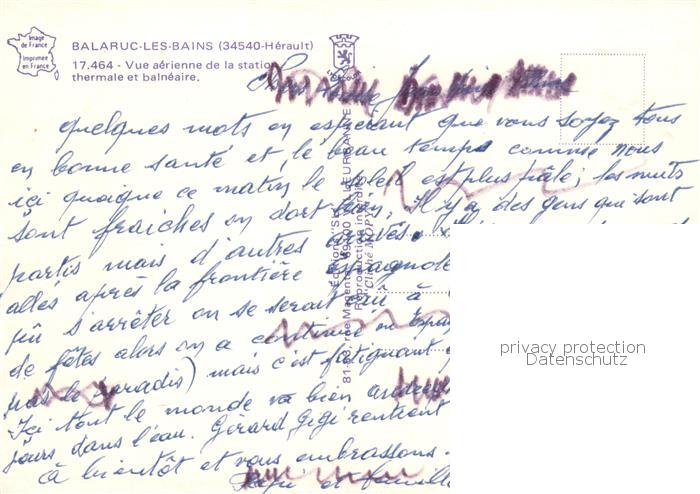 Image
de France
Imprimée
en France
BALARUC-LES-BAINS (34540-Hérault)
17.464 - Vue aérienne de la station
thermale et balnéaire.
quelques mots en espérant que vous soyez tous
en bonne santé et, le beau temps comme nous
ici quoique ce matin le soleil est plus pâle; les nuits
sont fraîches on dort bien, Il y a des gens qui sont
partis mais d'autres arrivés.
allés après la frontière espagnole
pu s'arrêter on se serait cru à
de fêtes alors on a continué en
pas le paradis) mais c'est fatigant
Ici tout le monde va bien
jours dans l'eau. Gérard Gigi rentient
à bientôt et vous embrassons.
et famille
81-83, rue Magenta - 69100 VILLEURBANNE
Reproduction interdite
privacy protection
Datenschutz